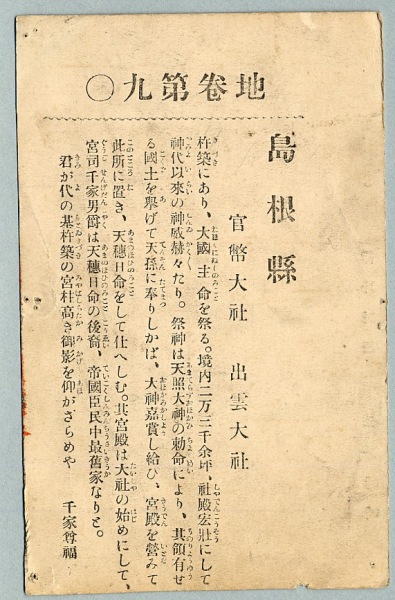 地卷第九〇
島根縣
官幣大社　出雲大社
杵築にあり、大國主命を祭る。境内二万三千余坪、社殿宏壯にして
神代以來の神威赫々たり。祭神は天照大神の勅命により、其領有せ
る國土を擧げて天孫に奉りしかば、大神嘉賞し給ひ、宮殿を營みて
此所に置き、天穗日命をして仕へしむ。其宮殿は大社の始めにして、
宮司千家男爵は天穗日命の後裔、帝國臣民中最舊家なりと。
君が代の基杵築の宮柱高き御影を仰がざらめや　千家尊福